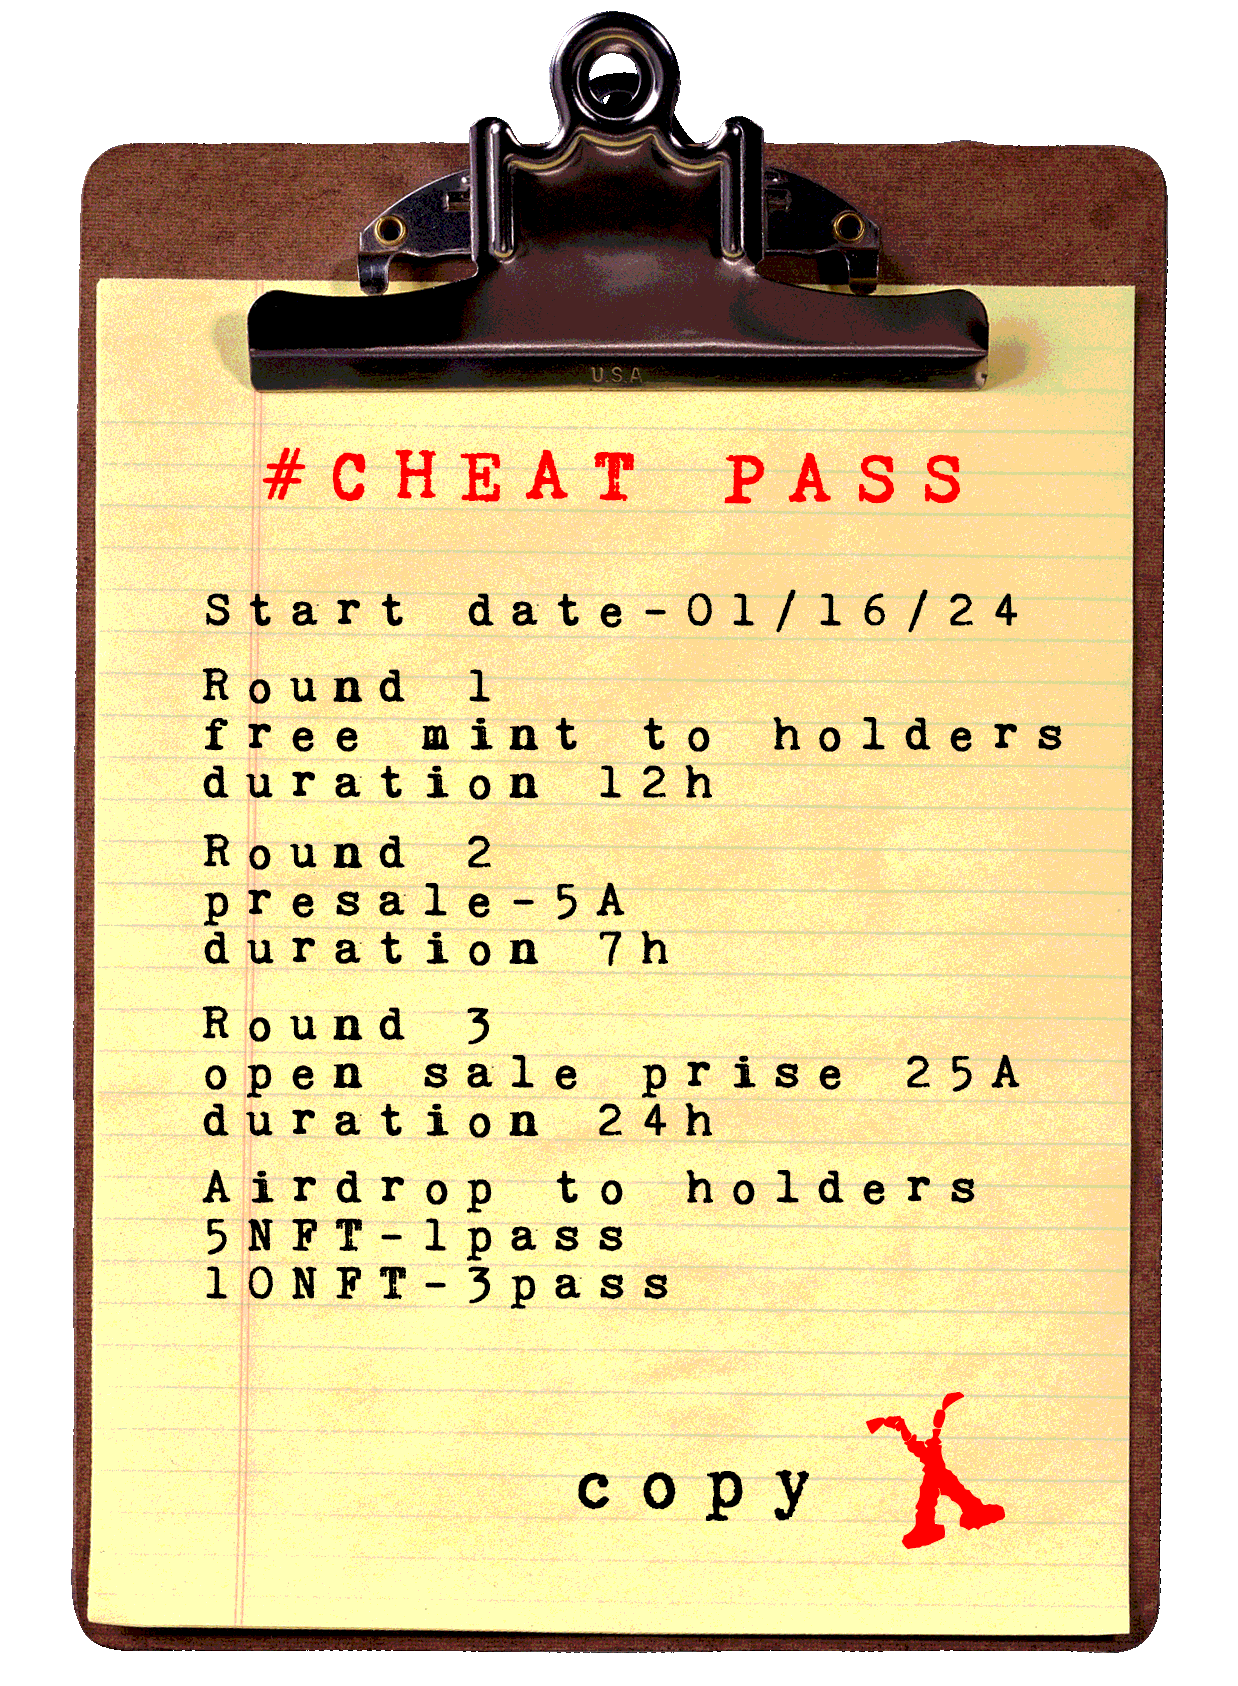 U.S.A
#CHEAT PASS
Start date-01/16/24
Round 1
free mint to holders
duration 12h
Round 2
presale-5A
duration 7h
Round 3
open sale prise 25A
duration 24h
Airdrop to holders
5NFT-1pass
10NFT-3pass
copy X